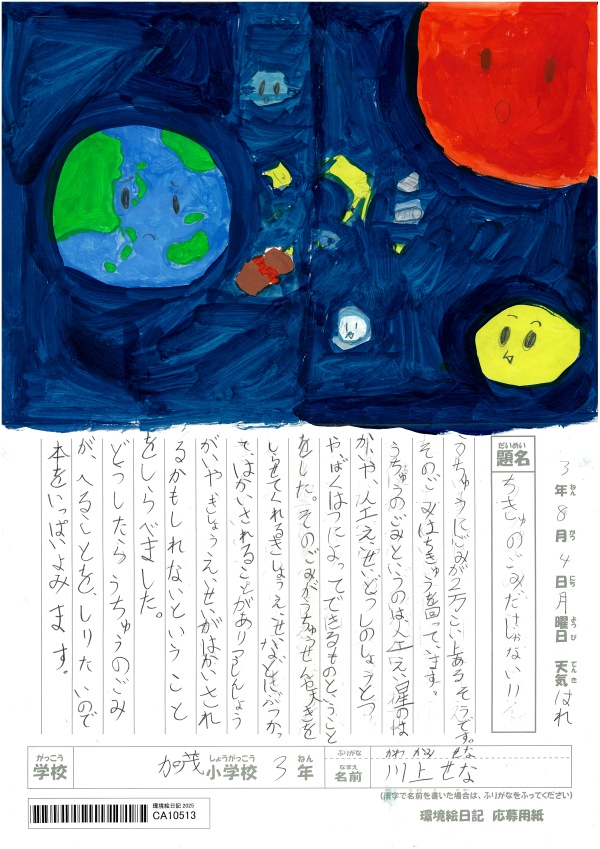 3年8月4日月曜日 天気はれ
ねん がつ にち ようび てんき
だいめい
題名
ちきゅのごみだけじゃない!!
うちゅうにごみが2万こい上あるそうです。
そのごみはちきゅうを回っています。
うちゅうのごみというのは、人工えい星のは
かいや、人工えいせいどうしのしょうとつ
やばくはつによってできるものということ
をした。そのごみがうちゅせんや天きを
しらせてくれるきしょうえいせいなどにぶつかっ
て、はかいされることがあり
がいやきしょうえいせいがはかいされ
るかもしれないということ
をしらべました。
どうしたらうちゅうのごみ
が、へることを、しりたいので
本をいっぱいよみます。
がっこう
学校
加茂小学校 3年
しょうがっこう ねん
ふりがな かわかみ せな
なまえ
名前 川上せな
(漢字で名前を書いた場合は、ふりがなをふってください)
環境絵日記 2025
CA10513
環境絵日記 応募用紙